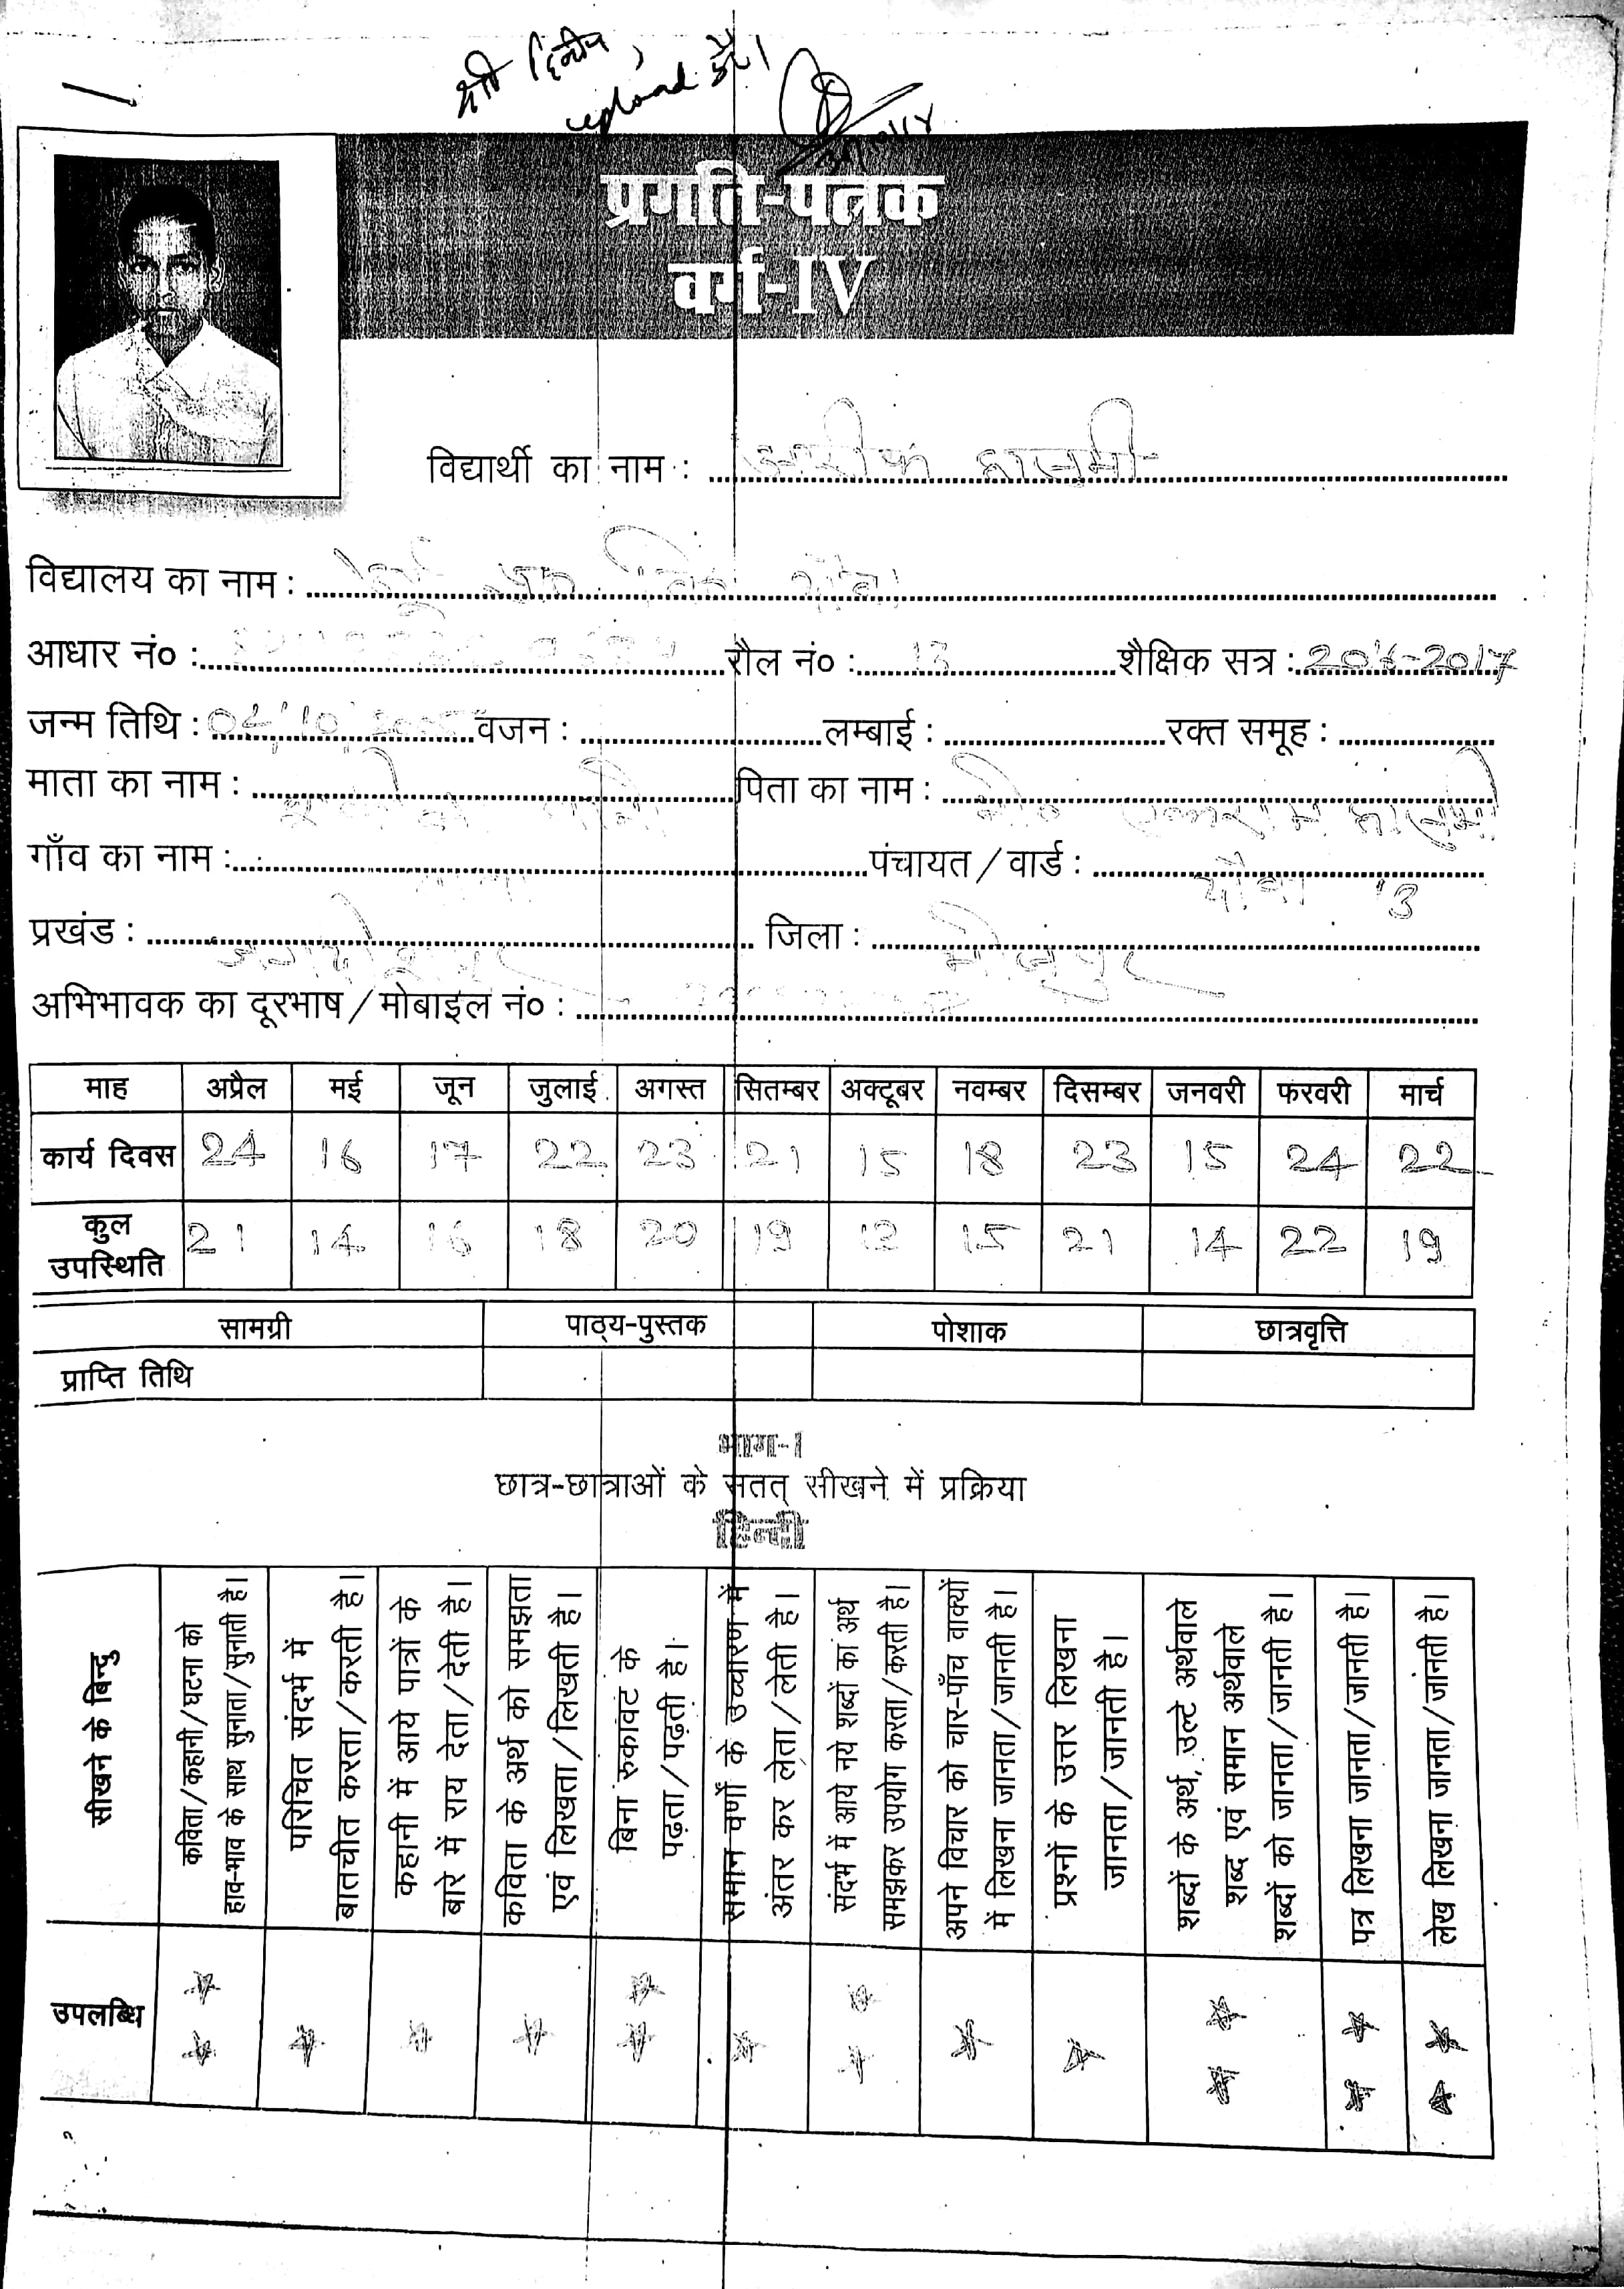 श्री दिलीप,
upload करें।
प्रगति-पत्रक
वर्ग-IV
विद्यार्थी का नाम : हासमी
विद्यालय का नाम :
आधार नं० : रौल नं० : 13 शैक्षिक सत्र : 2016-2017
जन्म तिथि : 10 वजन : लम्बाई : रक्त समूह :
माता का नाम : पिता का नाम : हासमी
गाँव का नाम : पंचायत / वार्ड : 13
प्रखंड : जगदीशपुर जिला : भोजपुर
अभिभावक का दूरभाष / मोबाइल नं० :
माह अप्रैल मई जून जुलाई अगस्त सितम्बर अक्टूबर नवम्बर दिसम्बर जनवरी फरवरी मार्च
कार्य दिवस 24 16 17 22 23 21 15 18 23 15 24 22
कुल उपस्थिति 21 14 16 18 20 19 12 15 21 14 22 19
सामग्री पाठ्य-पुस्तक पोशाक छात्रवृत्ति
प्राप्ति तिथि
भाग-I
छात्र-छात्राओं के सतत् सीखने में प्रक्रिया
हिन्दी
सीखने के बिन्दु
कविता/कहानी/घटना को
हाव-भाव के साथ सुनाता/सुनाती है।
परिचित संदर्भ में
बातचीत करता/करती है।
कहानी में आये पात्रों के
बारे में राय देता/देती है।
कविता के अर्थ को समझता
एवं लिखता/लिखती है।
बिना रुकावट के
पढ़ता/पढ़ती है।
समान वर्णों के उच्चारण में
अंतर कर लेता/लेती है।
संदर्भ में आये नये शब्दों का अर्थ
समझकर उपयोग करता/करती है।
अपने विचार को चार-पाँच वाक्यों
में लिखना जानता/जानती है।
प्रश्नों के उत्तर लिखना
जानता/जानती है।
शब्दों के अर्थ, उल्टे अर्थवाले
शब्द एवं समान अर्थवाले
शब्दों को जानता/जानती है।
पत्र लिखना जानता/जानती है।
लेख लिखना जानता/जानती है।
उपलब्धि